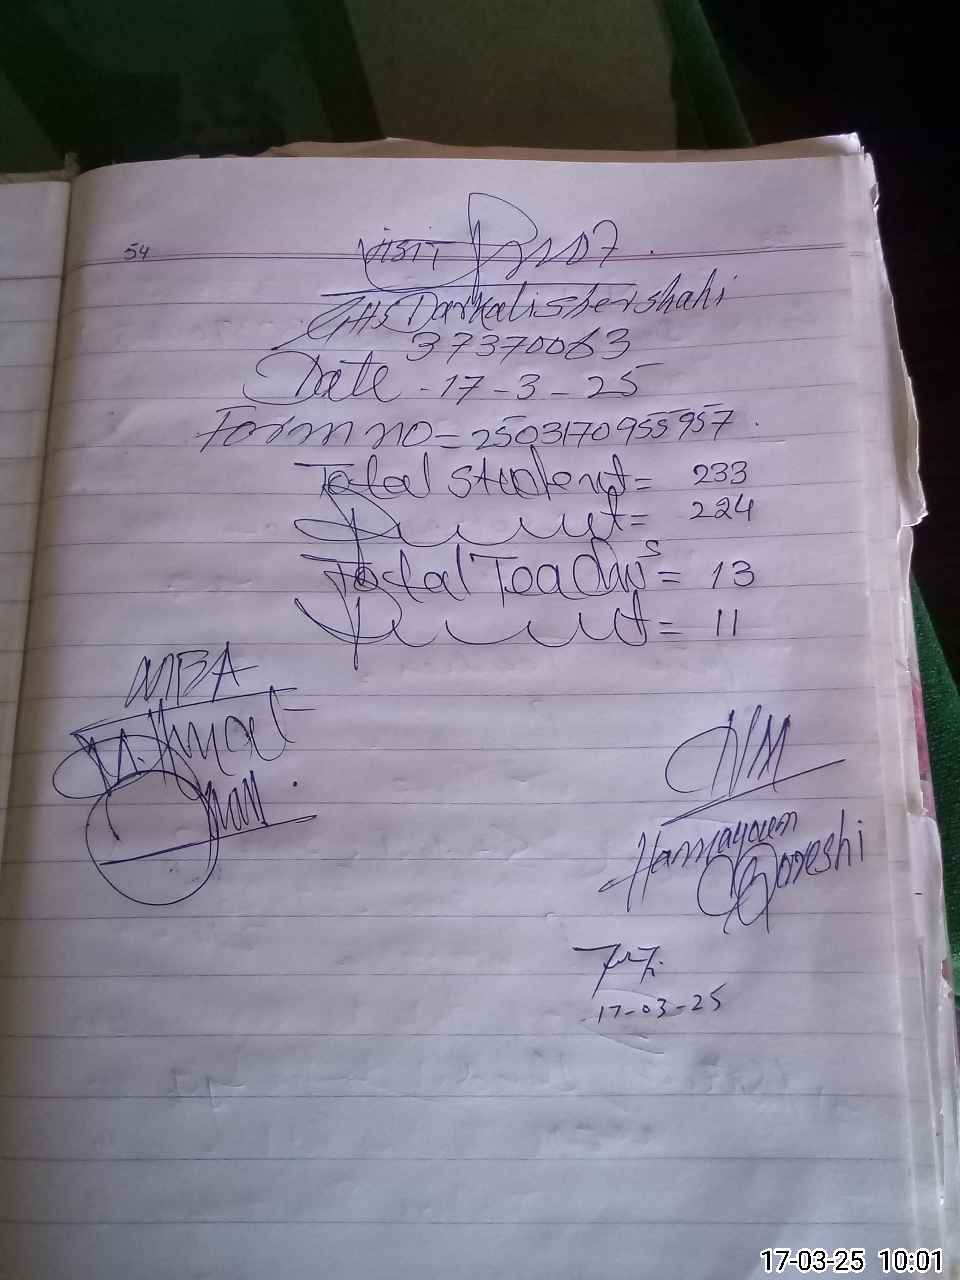 54
Visit Proof
GHS Darkalishershahi
37370063
Date - 17-3-25
Form no = 2503170955957.
Total Student = 233
Present = 224
Total Teachers = 13
Present = 11
MBA
M.
HM
Hamayoun
Qoreshi
17-03-25
17-03-25 10:01